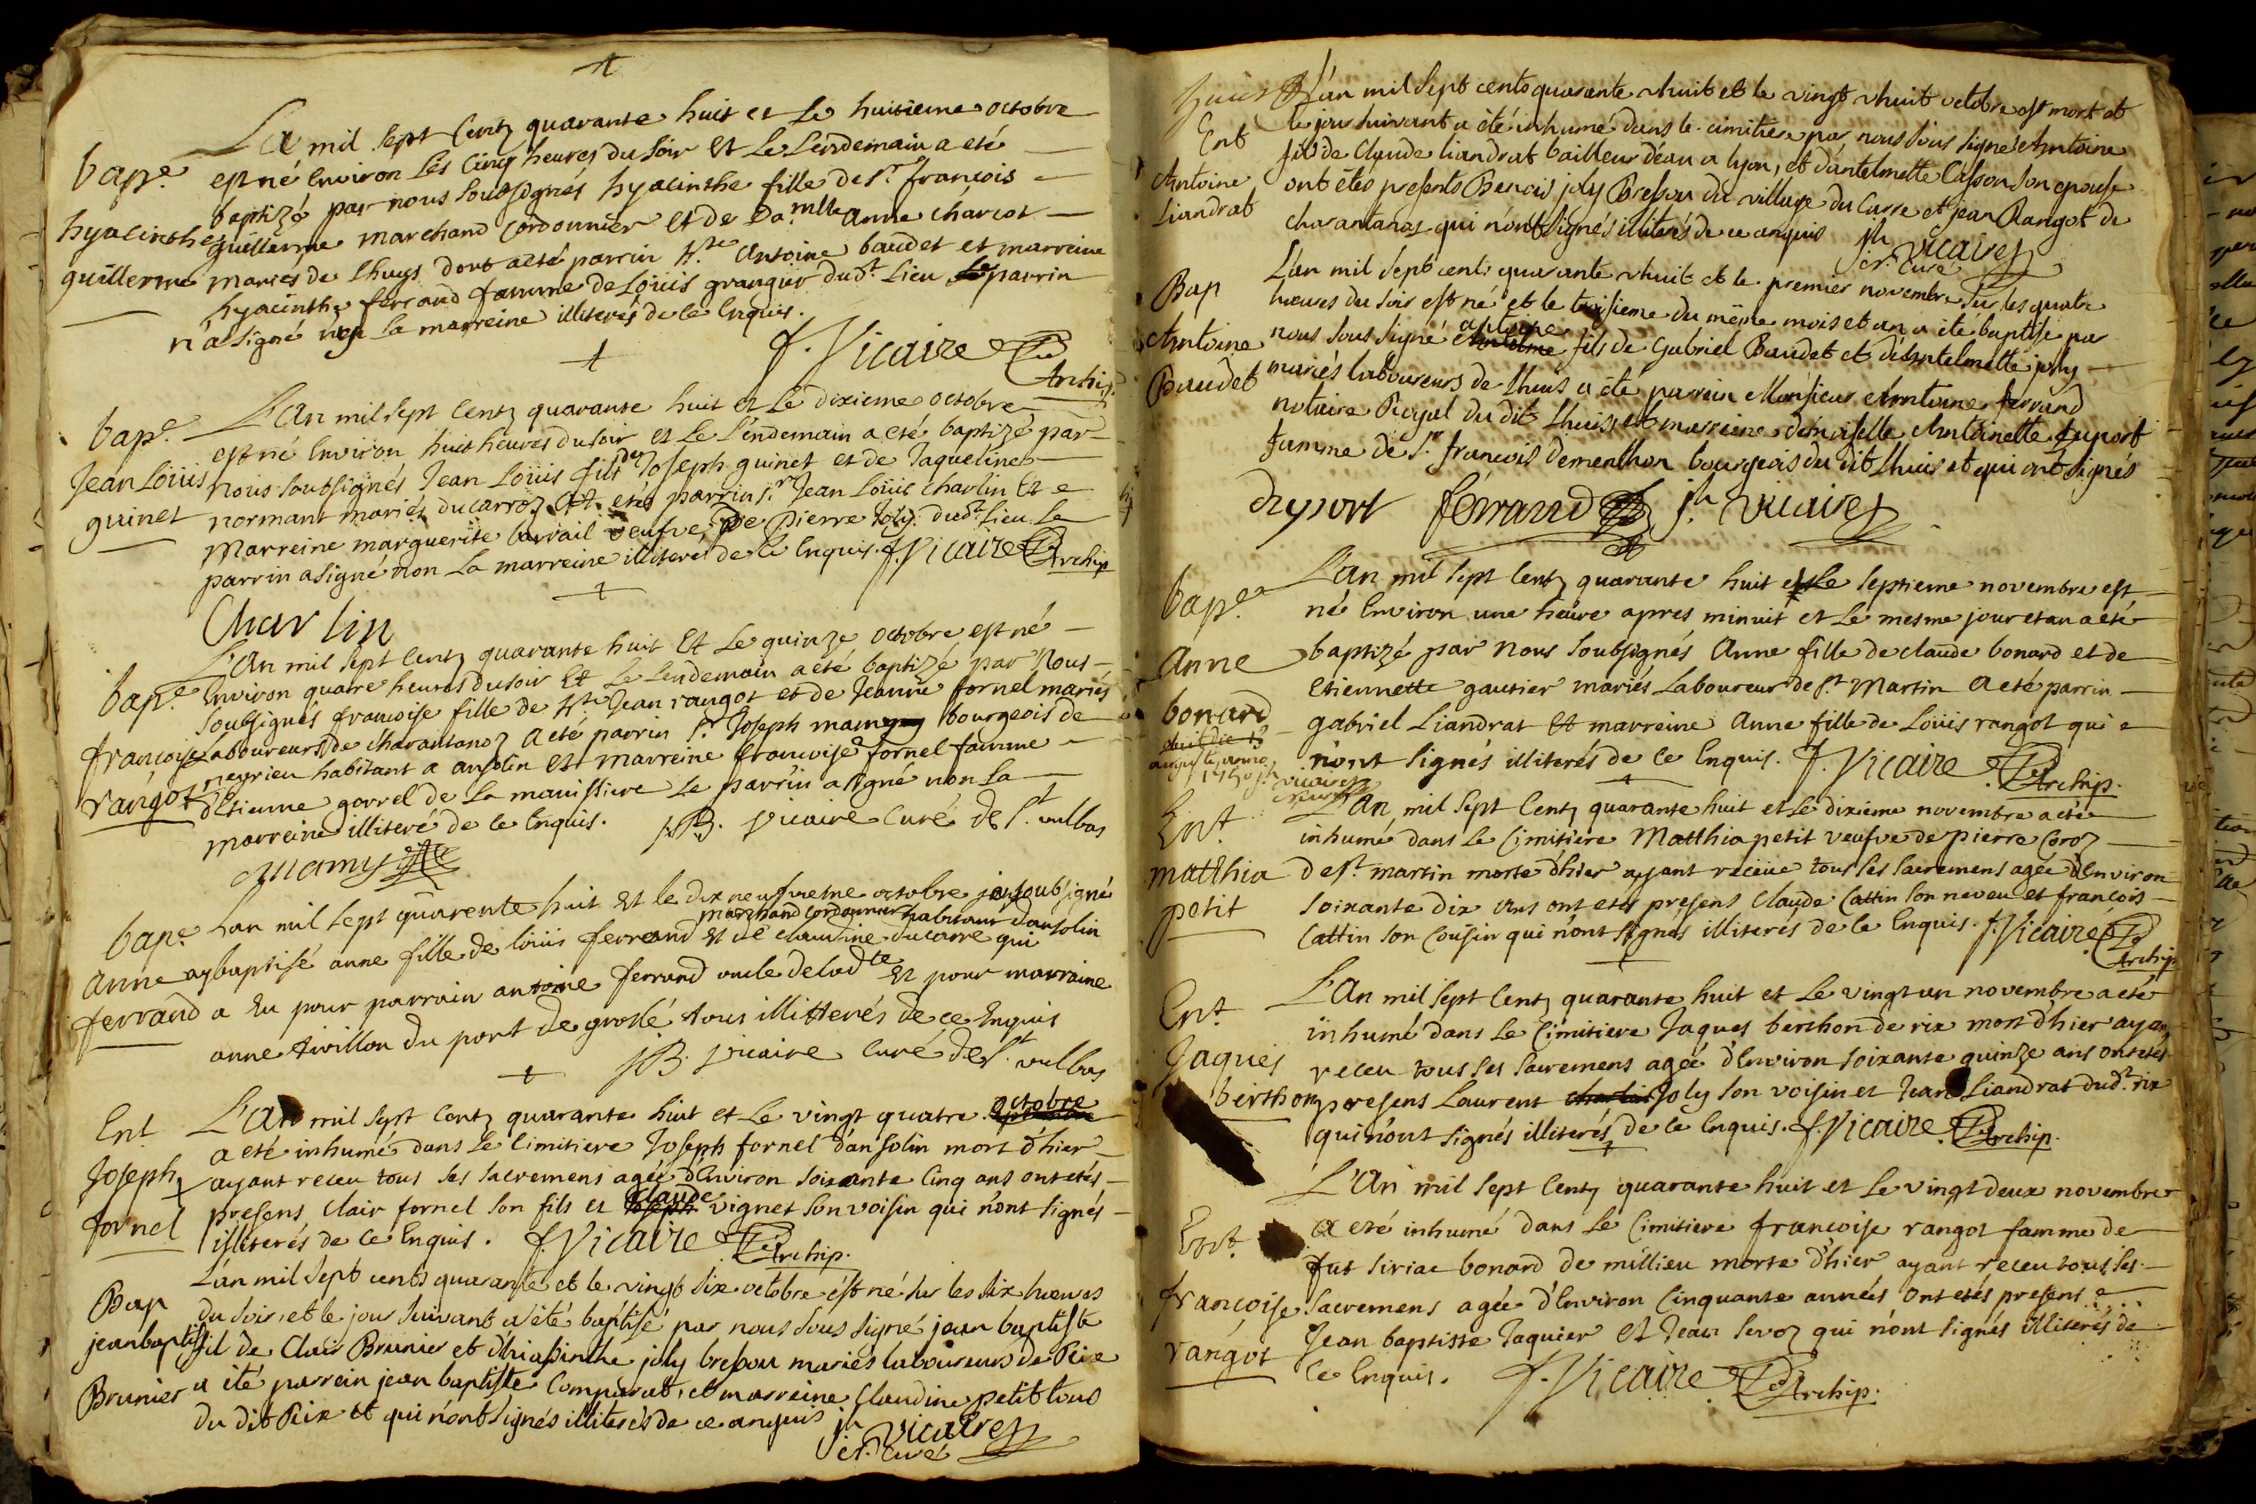 L'an mil sept Centz quarante huit et Le huitieme octobre
bape. est né Environ Les Cinq heures du soir Et Le Lendemain a eté
baptizé par nous soubsignés hyacinthe fille de Sr. françois
hyacinthe guillerme marchand Cordonnier et de Da.mlle Anne charcot
guillerme mariés de Lhuys dont a eté parrin hte. Antoine baudet et marreine
hyacinthe ferrand famme de Loüis grangier dudt. Lieu Le parrin
n'a signé non La marreine illiterés de ce Enquis.
J. Vicaire Cé Archip.
L'An mil sept Centz quarante huit et Le dixieme octobre
bape. est né Environ huit heures du soir et Le Lendemain a eté baptizé par
Jean Loüis nous soubsignés Jean Loüis fils de Joseph guinet et de Jaqueline
guinet normant mariés du carroz Et etés parrin sr. Jean Loüis Charlin Et
Marreine marguerite barrail veufve De pierre Joly dudt. Lieu Le
parrin a signé non La marreine illiteré de ce Enquis. J. Vicaire Cé Archip
Charlin
L'An mil sept Centz quarante huit Et Le quinze octobre est né
bape. Environ quatre heures du soir Et Le Lendemain a eté baptizé par Nous
soubsignés francoise fille de hte. Jean rangot et de Jeanne fornel mariés
françoise Laboureurs de Charantanoz a eté parrin sr. Joseph mamy bourgeois de
rangot meyrieu habitant a ansolin et marreine francoise fornel famme
d'Etienne gorrel de La manissiere Le parrin a signé non La
marreine illiteré de ce Enquis. J.B. Vicaire Curé de St. vulbas
Mamy
bape. Lan mil sept quarente huit et le dix neufvieme octobre je soubsigné
marchand Cordonnier habitant d'ansolin
anne ay baptisé anne fille de loüis ferrand et de claudine ducarre qui
ferrand a eu pour parrain antoine ferrand oncle de ladte et pour marraine
anne tivillon du port de groslé tous illitterés de ce Enquis
J.B. Vicaire Curé de St. vulbas
Ent L'An mil sept Centz quarante huit et Le vingt quatre octobre
a eté inhumé dans Le Cimitiere Joseph fornel d'ansolin mort d'hier
Joseph ayant receu tous ses sacremens agée d'Environ soixante Cinq ans ont etés
fornel presens Clair fornel son fils et Joseph claude vignet son voisin qui n'ont signés
illiterés de ce Enquis. J. Vicaire Cé Archip.
L'an mil sept cents quarante et le vingt six octobre est né sur les six heures
Bap du soir, et le jour suivant a été baptisé par nous sous signé jean baptiste
jean baptiste fil de Clair Brunier et d'hiassinthe joly bresson mariés laboureurs de Rix
Brunier a été parrein jean baptiste Comparat, et marreine Claudine petit tous
du dit Rix et qui n'ont signés illiterés de ce anquis jh vicaire
cr. curé
L'an mil sept cents quarante et huit et le vingt et huit octobre est mort et
Ent le jour suivant a été inhumé dans le cimitiere par nous sous signé Antoine
Antoine fils de Claude liandrat bailleur d'eau a lyon, et d'antelmette Casson son epouse
Liandrat ont étés presents Benois joly Bresson du village du Carre et jean Rangot de
charantanas qui n'ont signés illiterés de ce anquis jh vicaire
cr. curé
L'an mil sept cents quarante et huit et le premier novembre sur les quatre
Bap heures du soir est né et le troisieme du même mois et an a été baptisé par
Antoine nous sous signé Antelme antoine fils de Gabriel Baudet et d'Antelmette joly
Baudet mariés laboureurs de Lhuis a été parrein Monsieur Antoine ferrand
notaire Royal du dit Lhuis, et marreine demoiselle Antoinette duport
famme de Sr. francois dementhon bourgeois du dit Lhuis et qui ont signés
duport ferrand jh vicaire
L'An mil sept Centz quarante huit et Le septieme novembre est
bape. né Environ une heure apres minuit et Le mesme jour et an a eté
Anne baptizé par Nous soubsignés Anne fille de claude bonard et de
Etiennette gautier mariés Laboureur de St. Martin a eté parrin
bonard gabriel Liandrat et marreine Anne fille de Loüis rangot qui
n'ont signés illiterés de ce Enquis. J. Vicaire Cé Archip.
Ent. L'An mil sept Centz quarante huit et Le dixieme novembre a eté
inhumé dans Le Cimitiere Matthia petit veufve de pierre Coroz
matthia de St. martin morte d'hier ayant receüe tous ses sacremens agée d'Environ
petit soixante dix ans ont etés presens Claude Cattin son neveu et francois
Cattin son Cousin qui n'ont signés illiterés de ce Enquis. J. Vicaire Cé
Archip
Ent. L'An mil sept Centz quarante huit et Le vingt un novembre a eté
inhumé dans Le Cimitiere Jaques berthon de rix mort d'hier ayant
Jaques receu tous ses sacremens agée d'Environ soixante quinze ans ont etés
berthon presens Laurent Joly son voisin et Jean Liandrat dudt. rix
qui n'ont signés illiterés de ce Enquis. J. Vicaire Cé Archip.
L'An mil sept Centz quarante huit et Le vingt deux novembre
Ent. a eté inhumé dans Le Cimitiere francoise rangot famme de
fut siriac bonard de millieu morte d'hier ayant receu tous ses
françoise sacremens agée d'Environ Cinquante années ont etés presens
rangot Jean baptiste Jaquier et Jean sevoz qui n'ont signés illiterés de
ce Enquis. J. Vicaire Cé Archip.